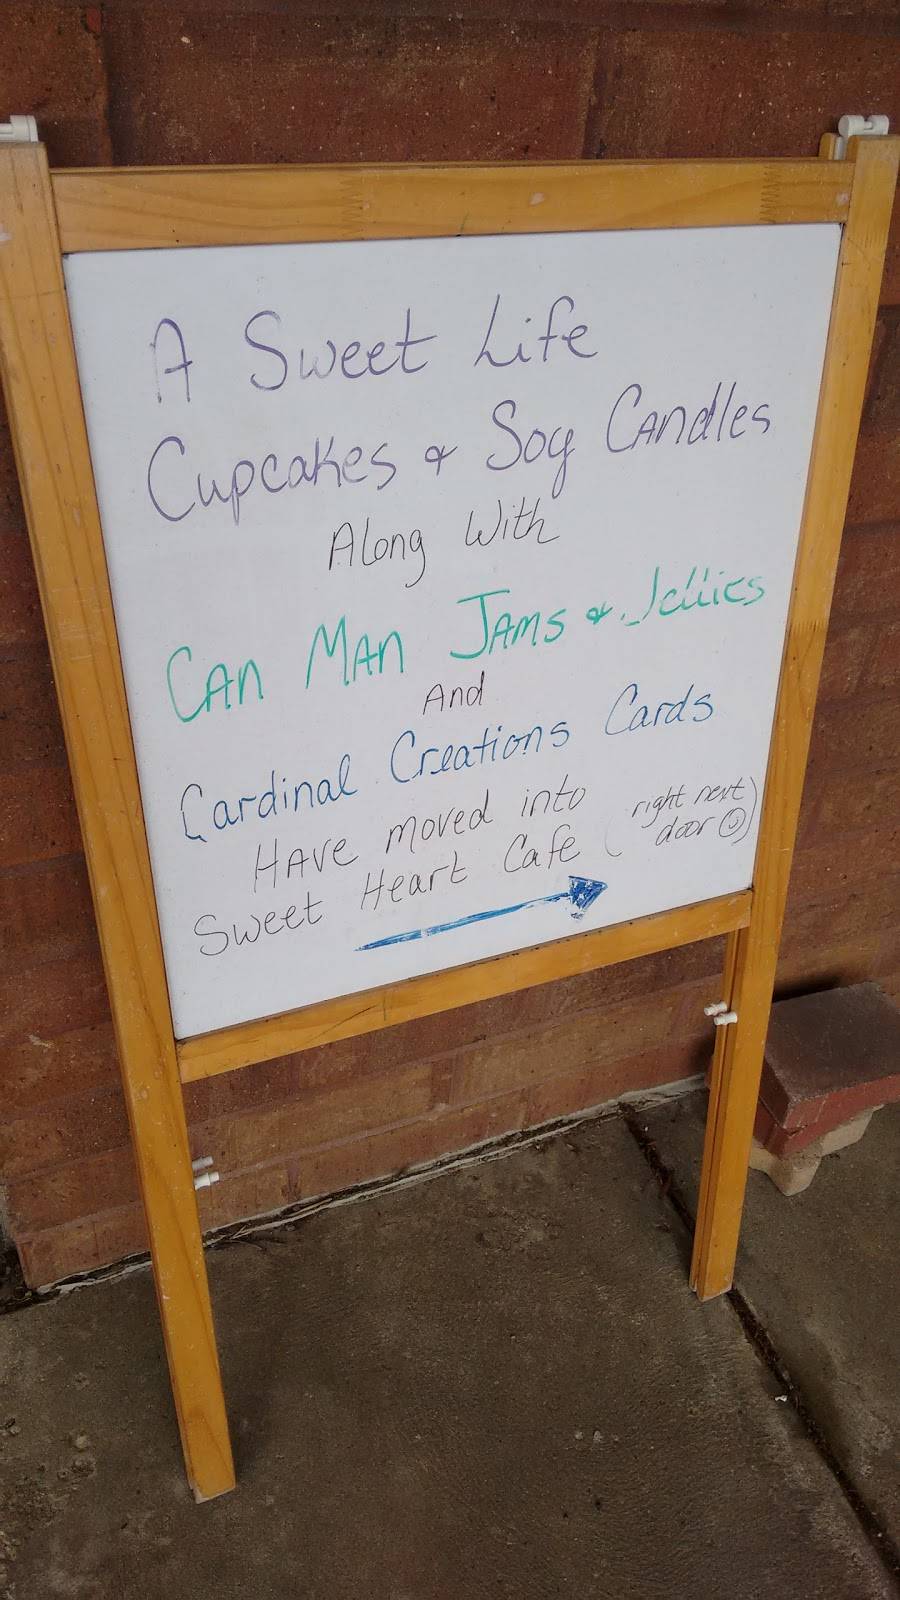 A Sweet Life
Cupcakes & Soy CANdles
Along With
CAN MAN JAMS & Jellies
And
Cardinal Creations Cards
HAVE moved into
Sweet Heart Cafe (right next
door ☺)